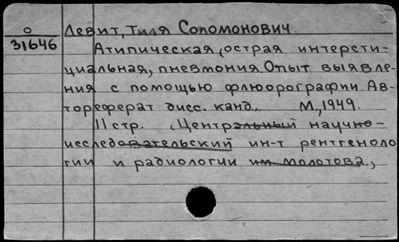 О Левит, Тиля Соломонович.
31646 Атипическая, острая интерсти-
циальная, пневмония. Опыт выявле-
ния с помощью флюорографии. Ав-
тореферат дисс. канд. М., 1949.
11 стр. , Центральный научно-
исследовательский ин-т рентгеноло
гии и радиологии им. Молотова.,